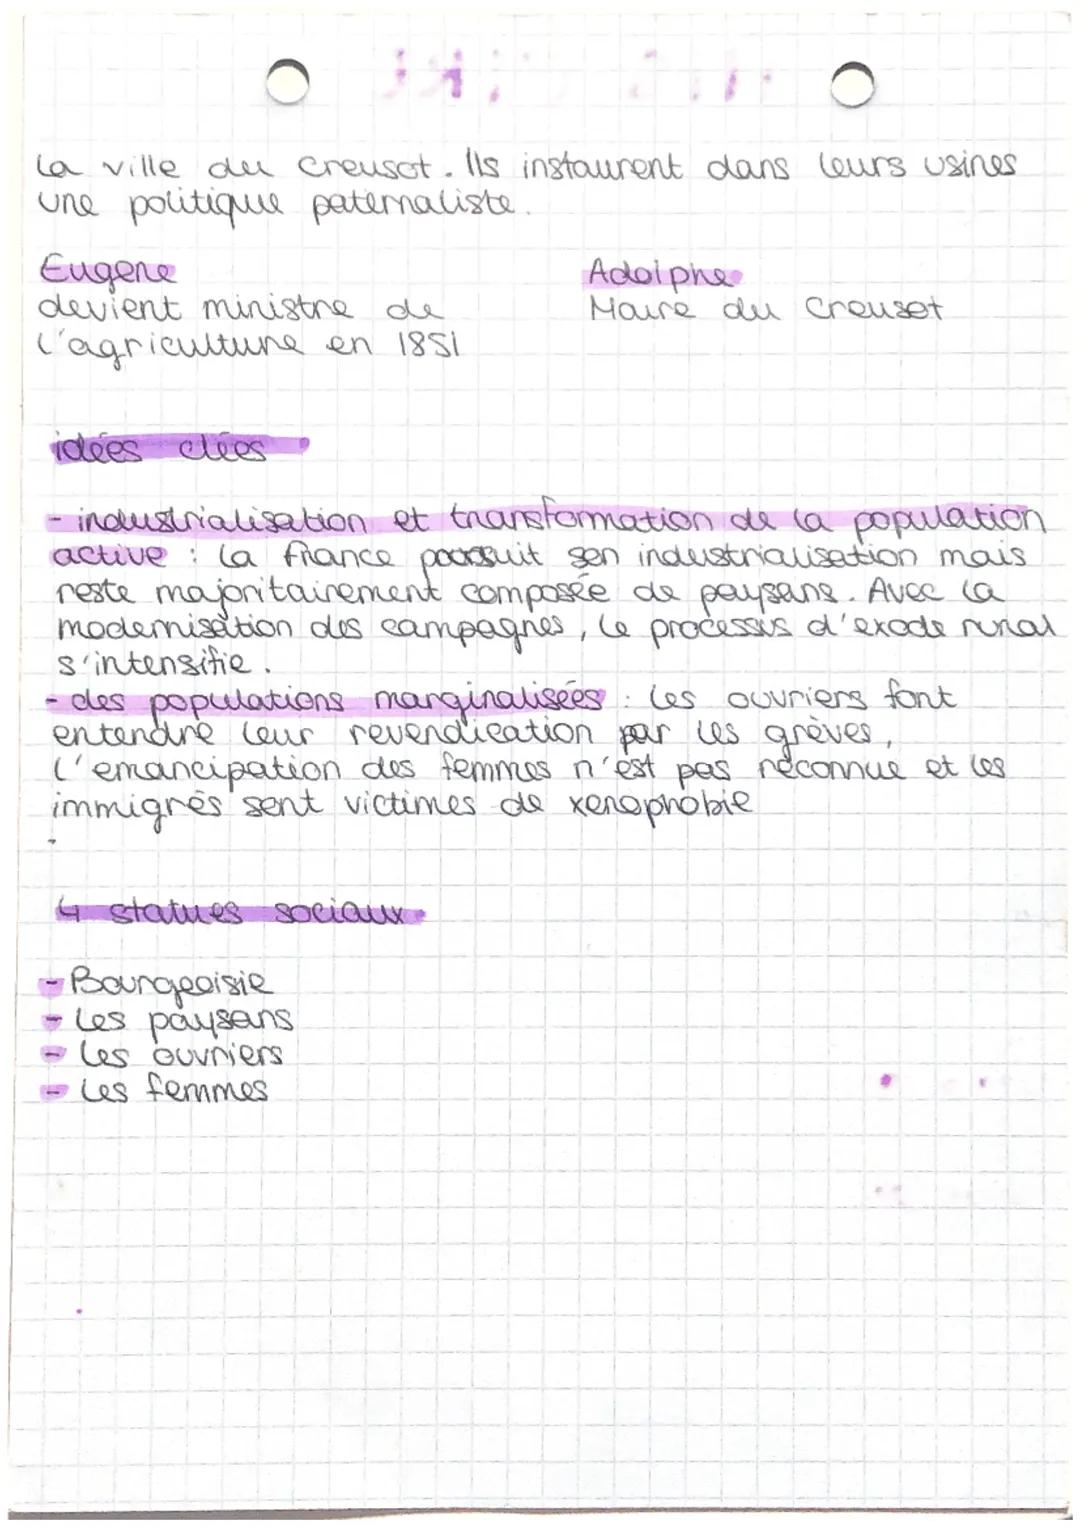 la ville du Creusot. Ils instaurent dans leurs usines
une politique paternaliste.
Eugene
devient ministre de
l'agriculture en 1851
Adolphe
Maire du Creusot
idées clées
- industrialisation et transformation de la population
active : la france poursuit son industrialisation mais
reste majoritairement composée de paysans. Avec la
modernisation des campagnes, le processus d'exode rural
s'intensifie.
- des populations marginalisées : les ouvriers font
entendre leur revendication par les grèves,
l'emancipation des femmes n'est pas reconnue et les
immigrés sont victimes de xenophobie
4 statues sociaux
- Bourgeoisie
- les paysans
- les ouvriers
- les femmes